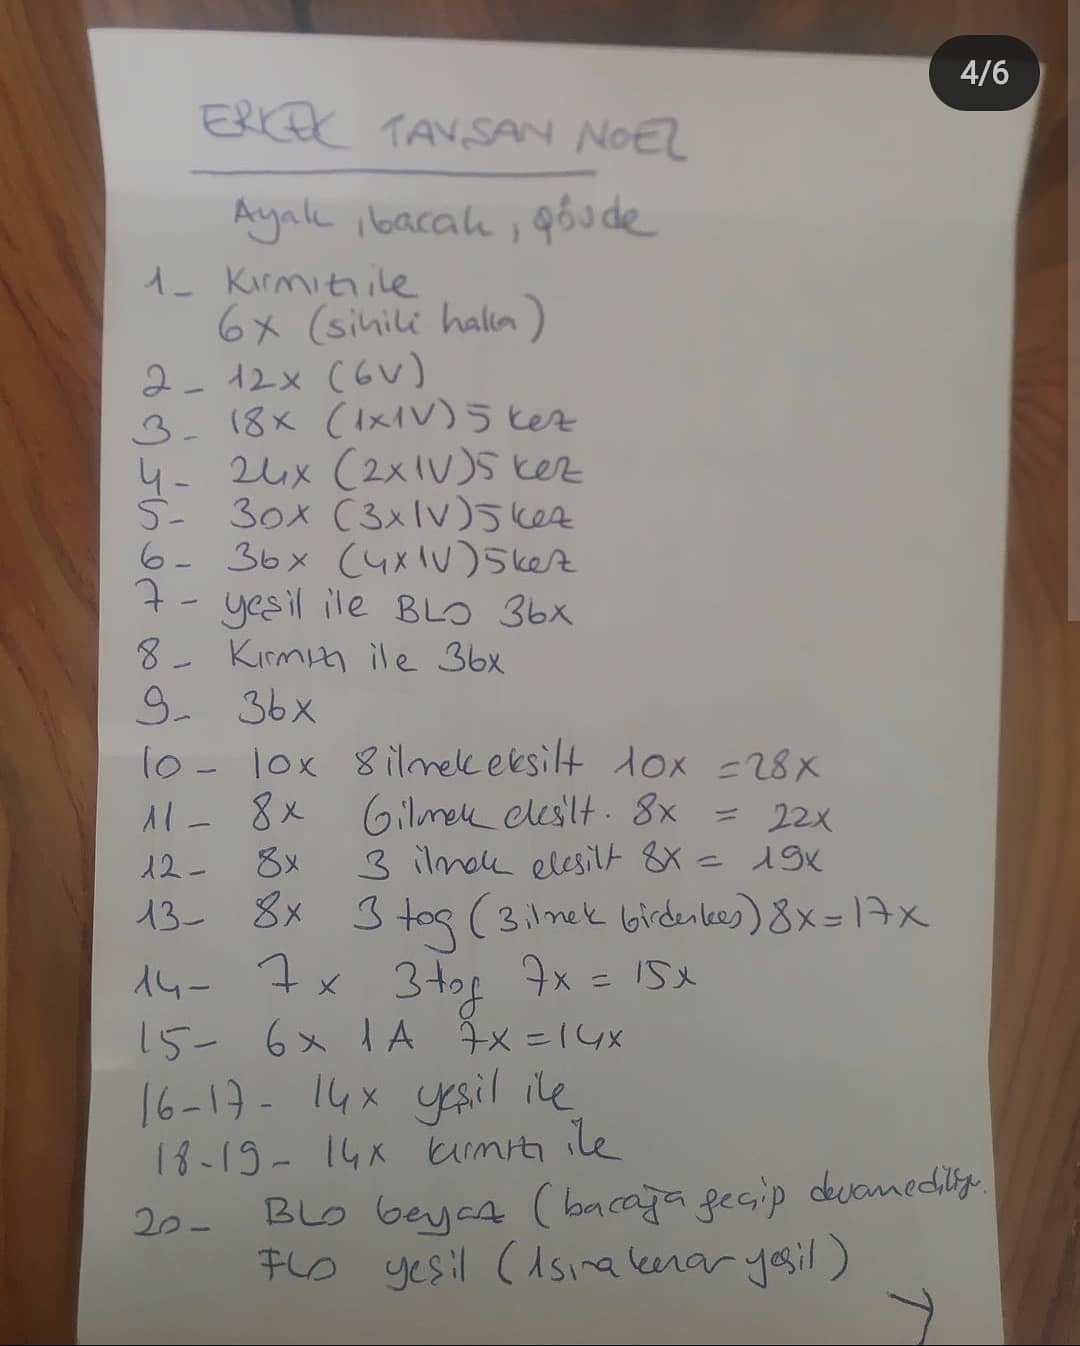 4/6
ERKEK TAVŞAN NOEL
Ayak, bacak, gövde
1- Kırmızı ile
6x (sihili halka)
2- 12x (6V)
3- 18x (1x1V) 5 kez
4- 24x (2x1V) 5 kez
5- 30x (3x1V) 5 kez
6- 36x (4x1V) 5 kez
7- yeşil ile BLO 36x
8- Kırmızı ile 36x
9- 36x
10- 10x 8 ilmek eksilt 10x = 28x
11- 8x 6 ilmek eksilt. 8x = 22x
12- 8x 3 ilmek eksilt 8x = 19x
13- 8x 3 tog (3 ilmek birden kes) 8x = 17x
14- 7x 3 tog 7x = 15x
15- 6x 1A 7x = 14x
16-17- 14x yeşil ile
18-19- 14x kırmızı ile
20- BLO beyaz (bacağa geçip devam ediliyor.
FLO yeşil (1 sıra kenar yeşil)